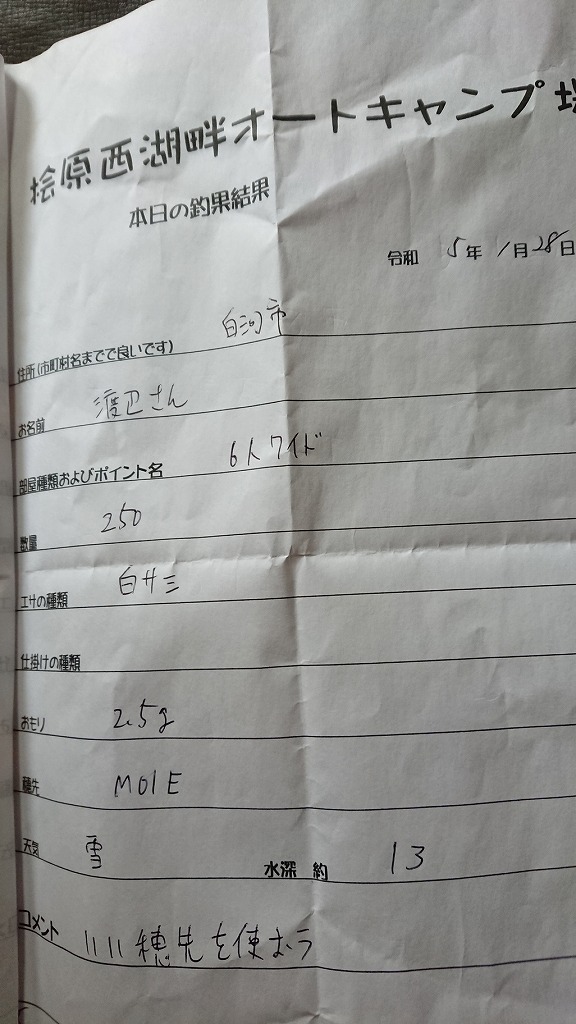 桧原西湖畔オートキャンプ場
本日の釣果結果
令和 5年 1月28日
白河市
住所(市町村名までで良いです)
お名前 渡辺さん
部屋種類およびポイント名 6人ワイド
数量 250
エサの種類 白サミ
仕掛けの種類
おもり 2.5g
穂先 M01E
天気 雪 水深 約 13
コメント いい穂先を使おう